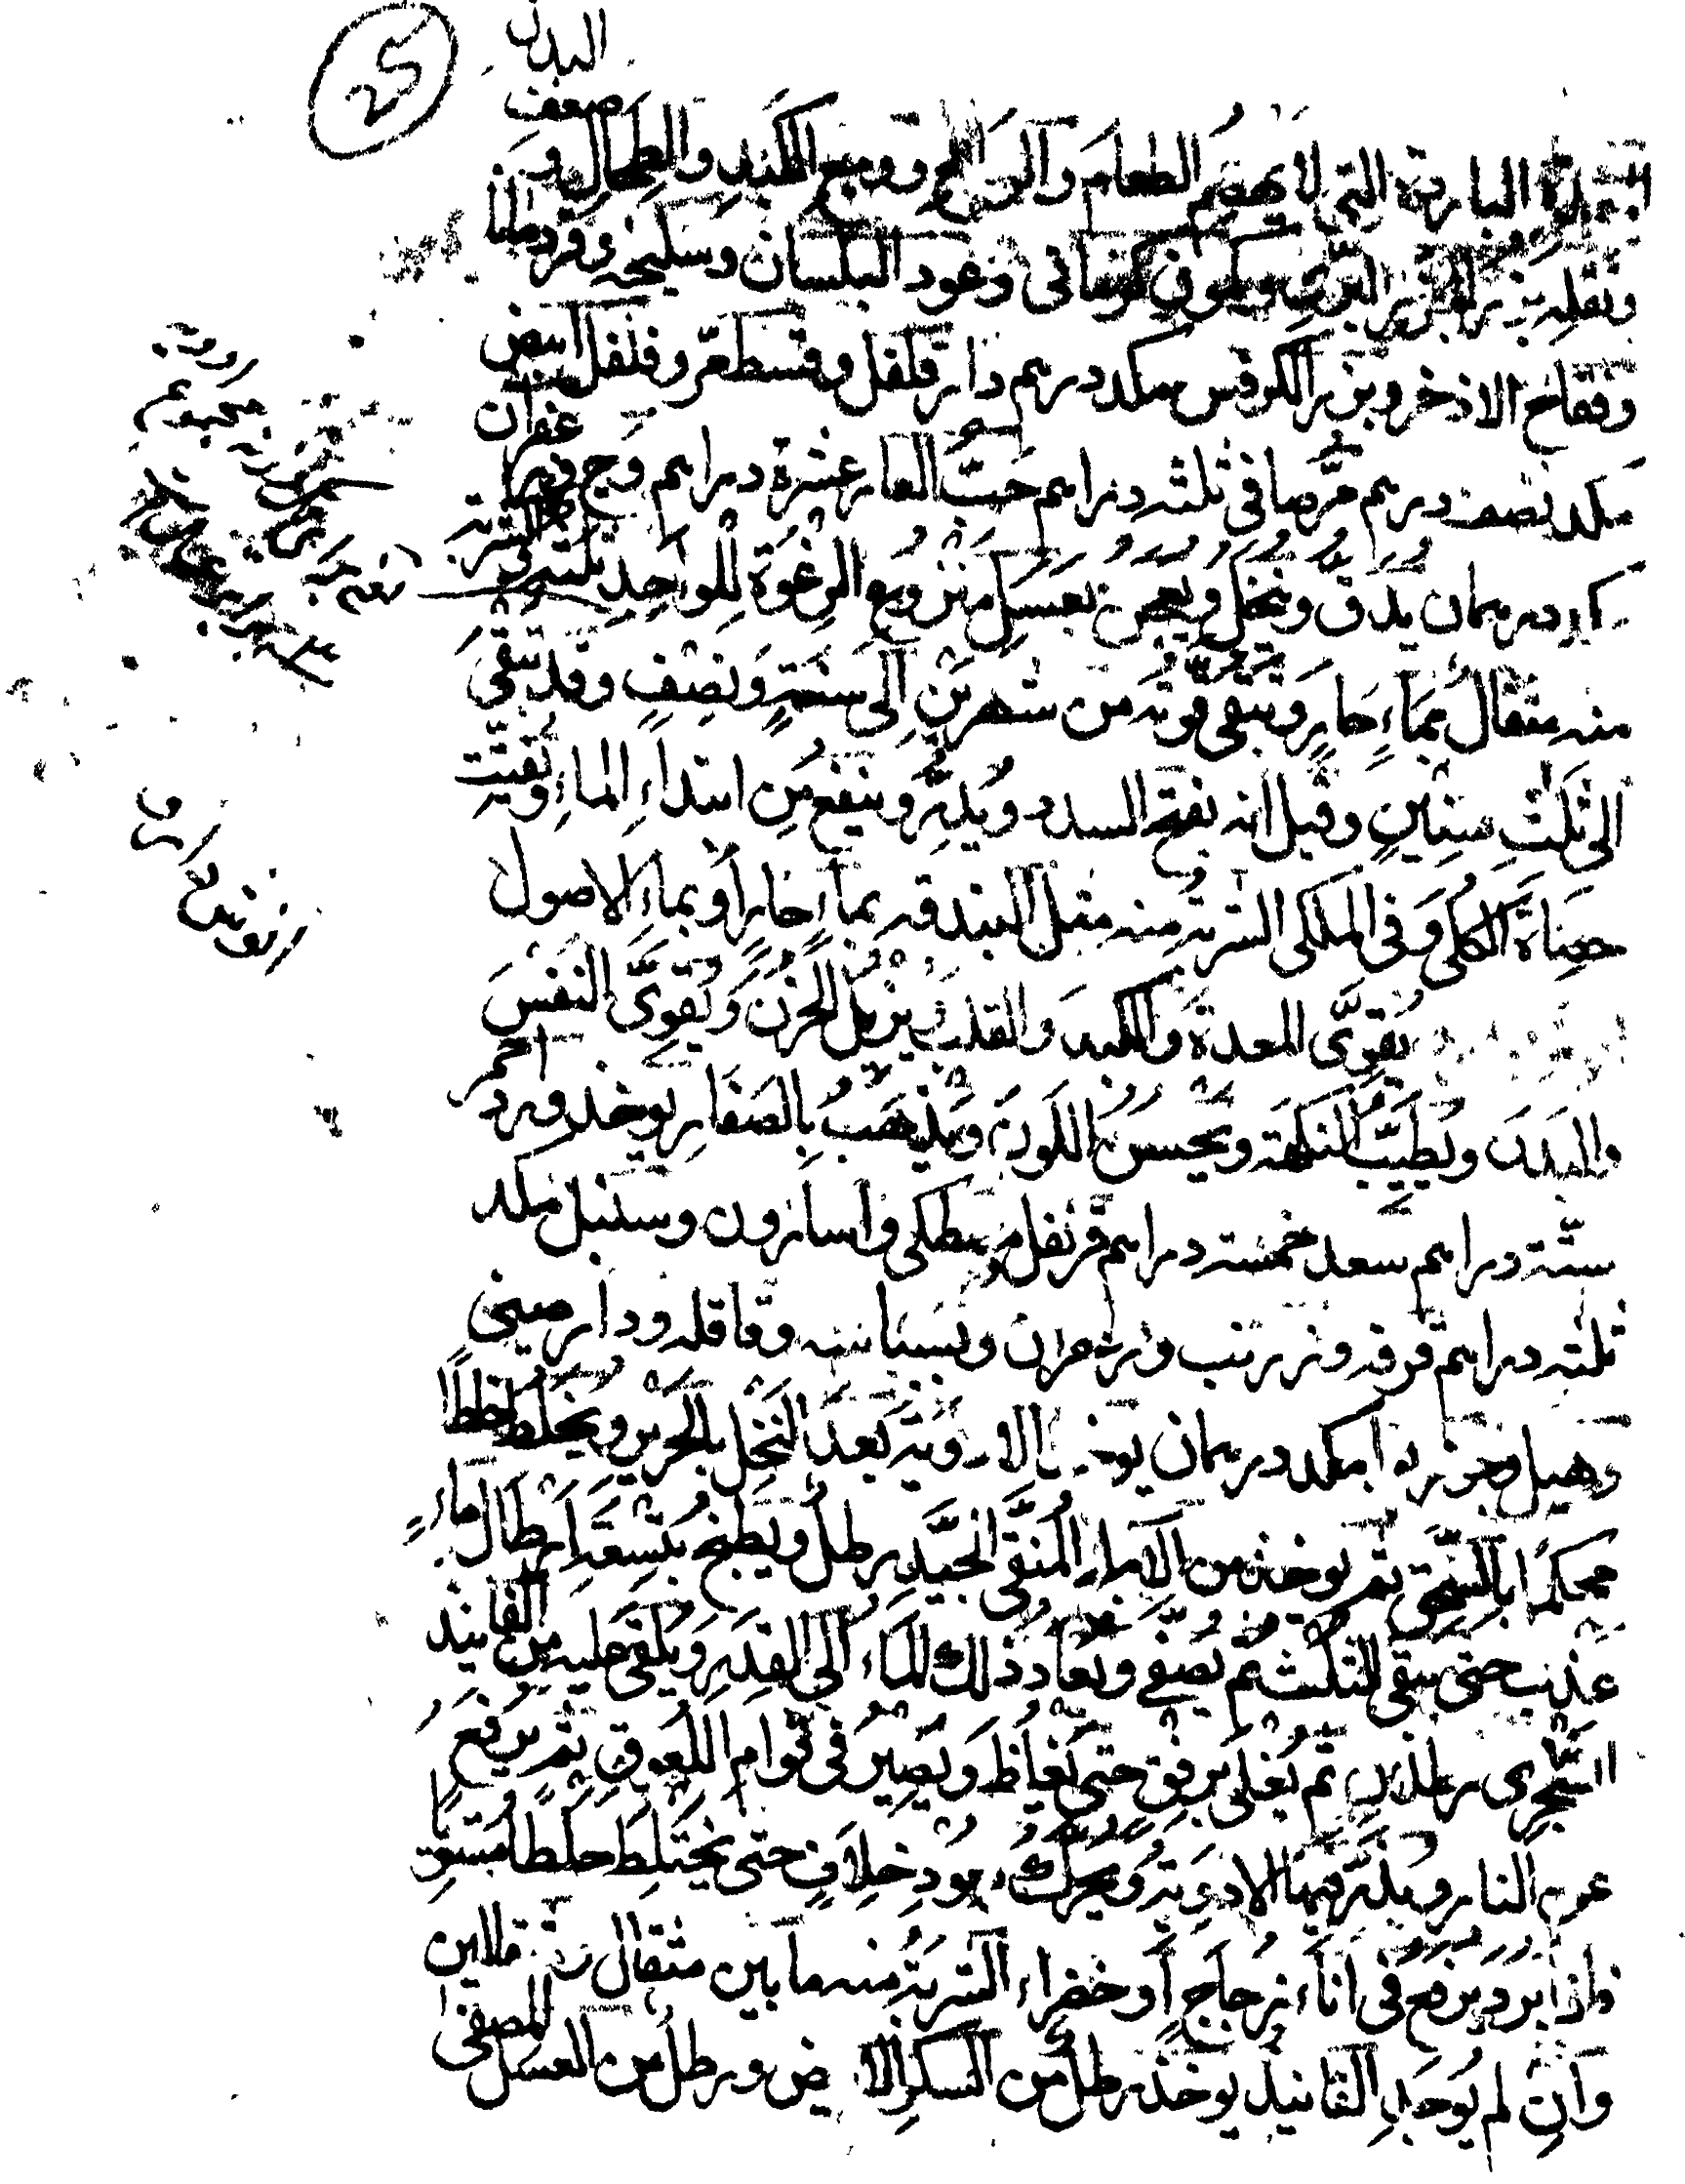 البدن
ضعف
المعدة الباردة التي لا يهضم الطعام والرياح ووجع الكبد والطحال
بزر الجزر البري وكمون كرماني وعود البلسان وسليخه وقردمانا
وفقاح الاذخر وبزر الكرفس مكد درهم دار فلفل وقسط مر وفلفل ابيض
مكد نصف درهم مر صافي ثلثه دراهم حب الغار عشرة دراهم وج وزعفران
مكد درهمان يدق وينخل ويعجن بعسل منزوع الرغوة للواحد ثلثه الشربة
منه مثقال بماء حار وتبقى قوته من شهرين الى سنة ونصف وقد تبقى
الى ثلث سنين وقيل انه يفتح السدد ويدر وينفع من ابتداء الماء وتفتت
حصاة الكلى وفي الملكي الشربة منه مثل البندقه بماء حار أو بماء الاصول
يقوى المعدة والكبد والقلب ويزيل الحزن ويقوى النفس
والبدن ويطيب النكهة ويحسن اللون ويذهب بالصفار يوخذ ورد احمر
ستة دراهم سعد خمسة دراهم قرنفل مصطكى واسارون وسنبل مكد
ثلثه دراهم قرفه وزرنب وزعفران وبسباسه وقاقله ودارصيني
وهيل وجوزبوا مكد درهمان يوخذ الادوية بعد النخل بالحرير ويخلط خلطا
محكما بالسحق ثم يوخذ من الاملج المنقى الجيد رطل ويطبخ بتسعة ارطال ماء
عذب حتى يبقى الثلث ثم يصفى ويعاد ذلك الماء الى القدر ويلقى عليه من الفانيذ
السجزى رطلان ثم يغلى برفق حتى يغلظ ويصير في قوام اللعوق ثم يرفع
عن النار ويذر فيها الادوية ويحرك بعود خلاف حتى يختلط خلطا مستويا
فاذا برد يرفع في اناء زجاج أو خضراء الشربة منه ما بين مثقال ومثقالين
وان لم يوجد الفانيذ يوخذ رطل من السكر الابيض ورطل من العسل المصفى